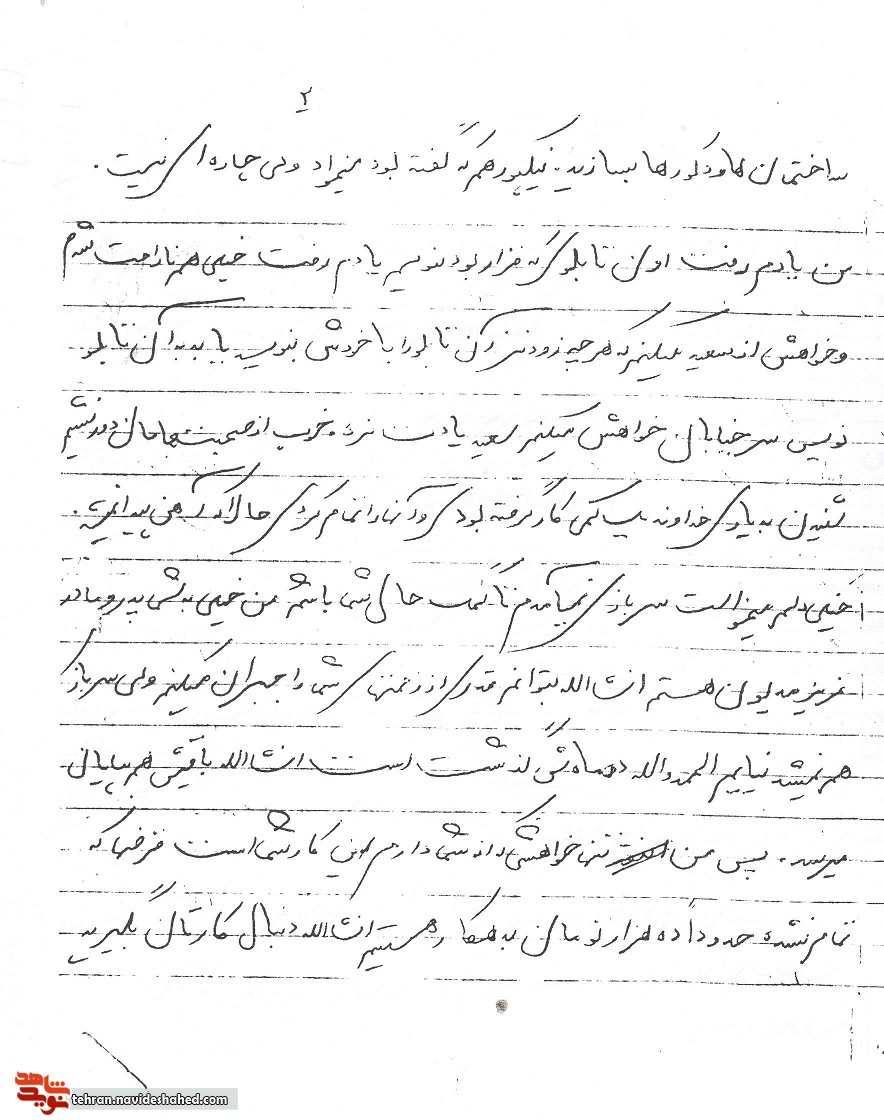 ۲
ساختمان ها و دکورها بسازید. نیکپور هم که گفته بود میخواد ولی چاره ای نیست.
من یادم رفت اون تابلوی که قرار بود بنویسم یادم رفت خیلی هم ناراحت شدم
و خواهش از سعید میکنم که هر چه زودتر آن تابلو را با خودش بنویسد یا بدید آن تابلو
نویس سر خیابان خواهش میکنم سعید یادت نره. خوب از صحبت هامان دور نشیم
شنیدن به یاری خداوند یک کمی کار گرفته بودی و آنها را تمام کردی حالا که آهن پیدا نمیشه.
خیلی دلم میخواست سربازی نمیآمدم تا کمک حال شما باشم من خیلی به شما پدر و مادر
عزیز مدیون هستم انشاالله بتوانم قدری از زحمتهای شما را جبران میکنم ولی سربازی
هم نمیشد نیاییم الحمدوالله ده ماهش گذشت است انشاالله باقیش هم بپایان
میرسد. پس من تنها خواهشی که از شما دارم این کار شما است قرضها که
تمام نشده حدوداً ده هزار تومان بدهکار هستیم انشاالله دنبال کارتان بگیرید
شاهد
نوید
tehran.navideshahed.com